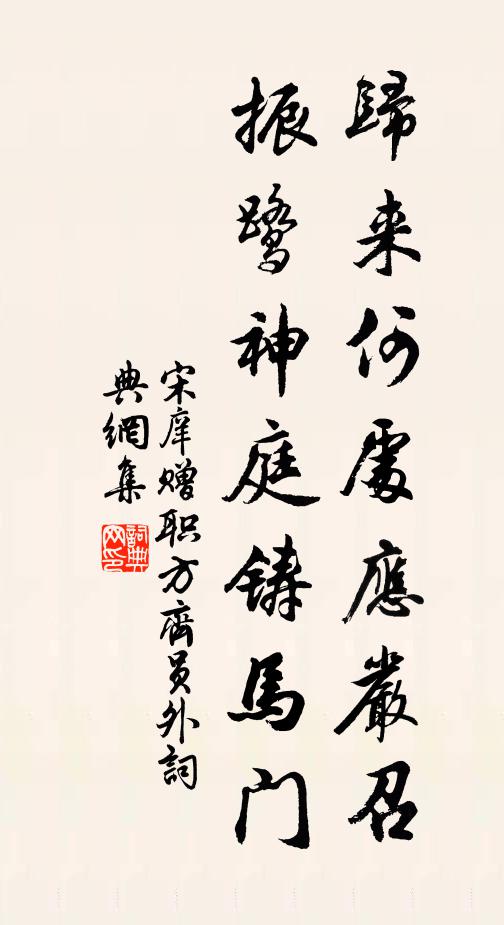 歸来何處應嚴召
振鹭神庭鑄馬门
宋庠赠职方齊员外詞
典網集
詞典网印